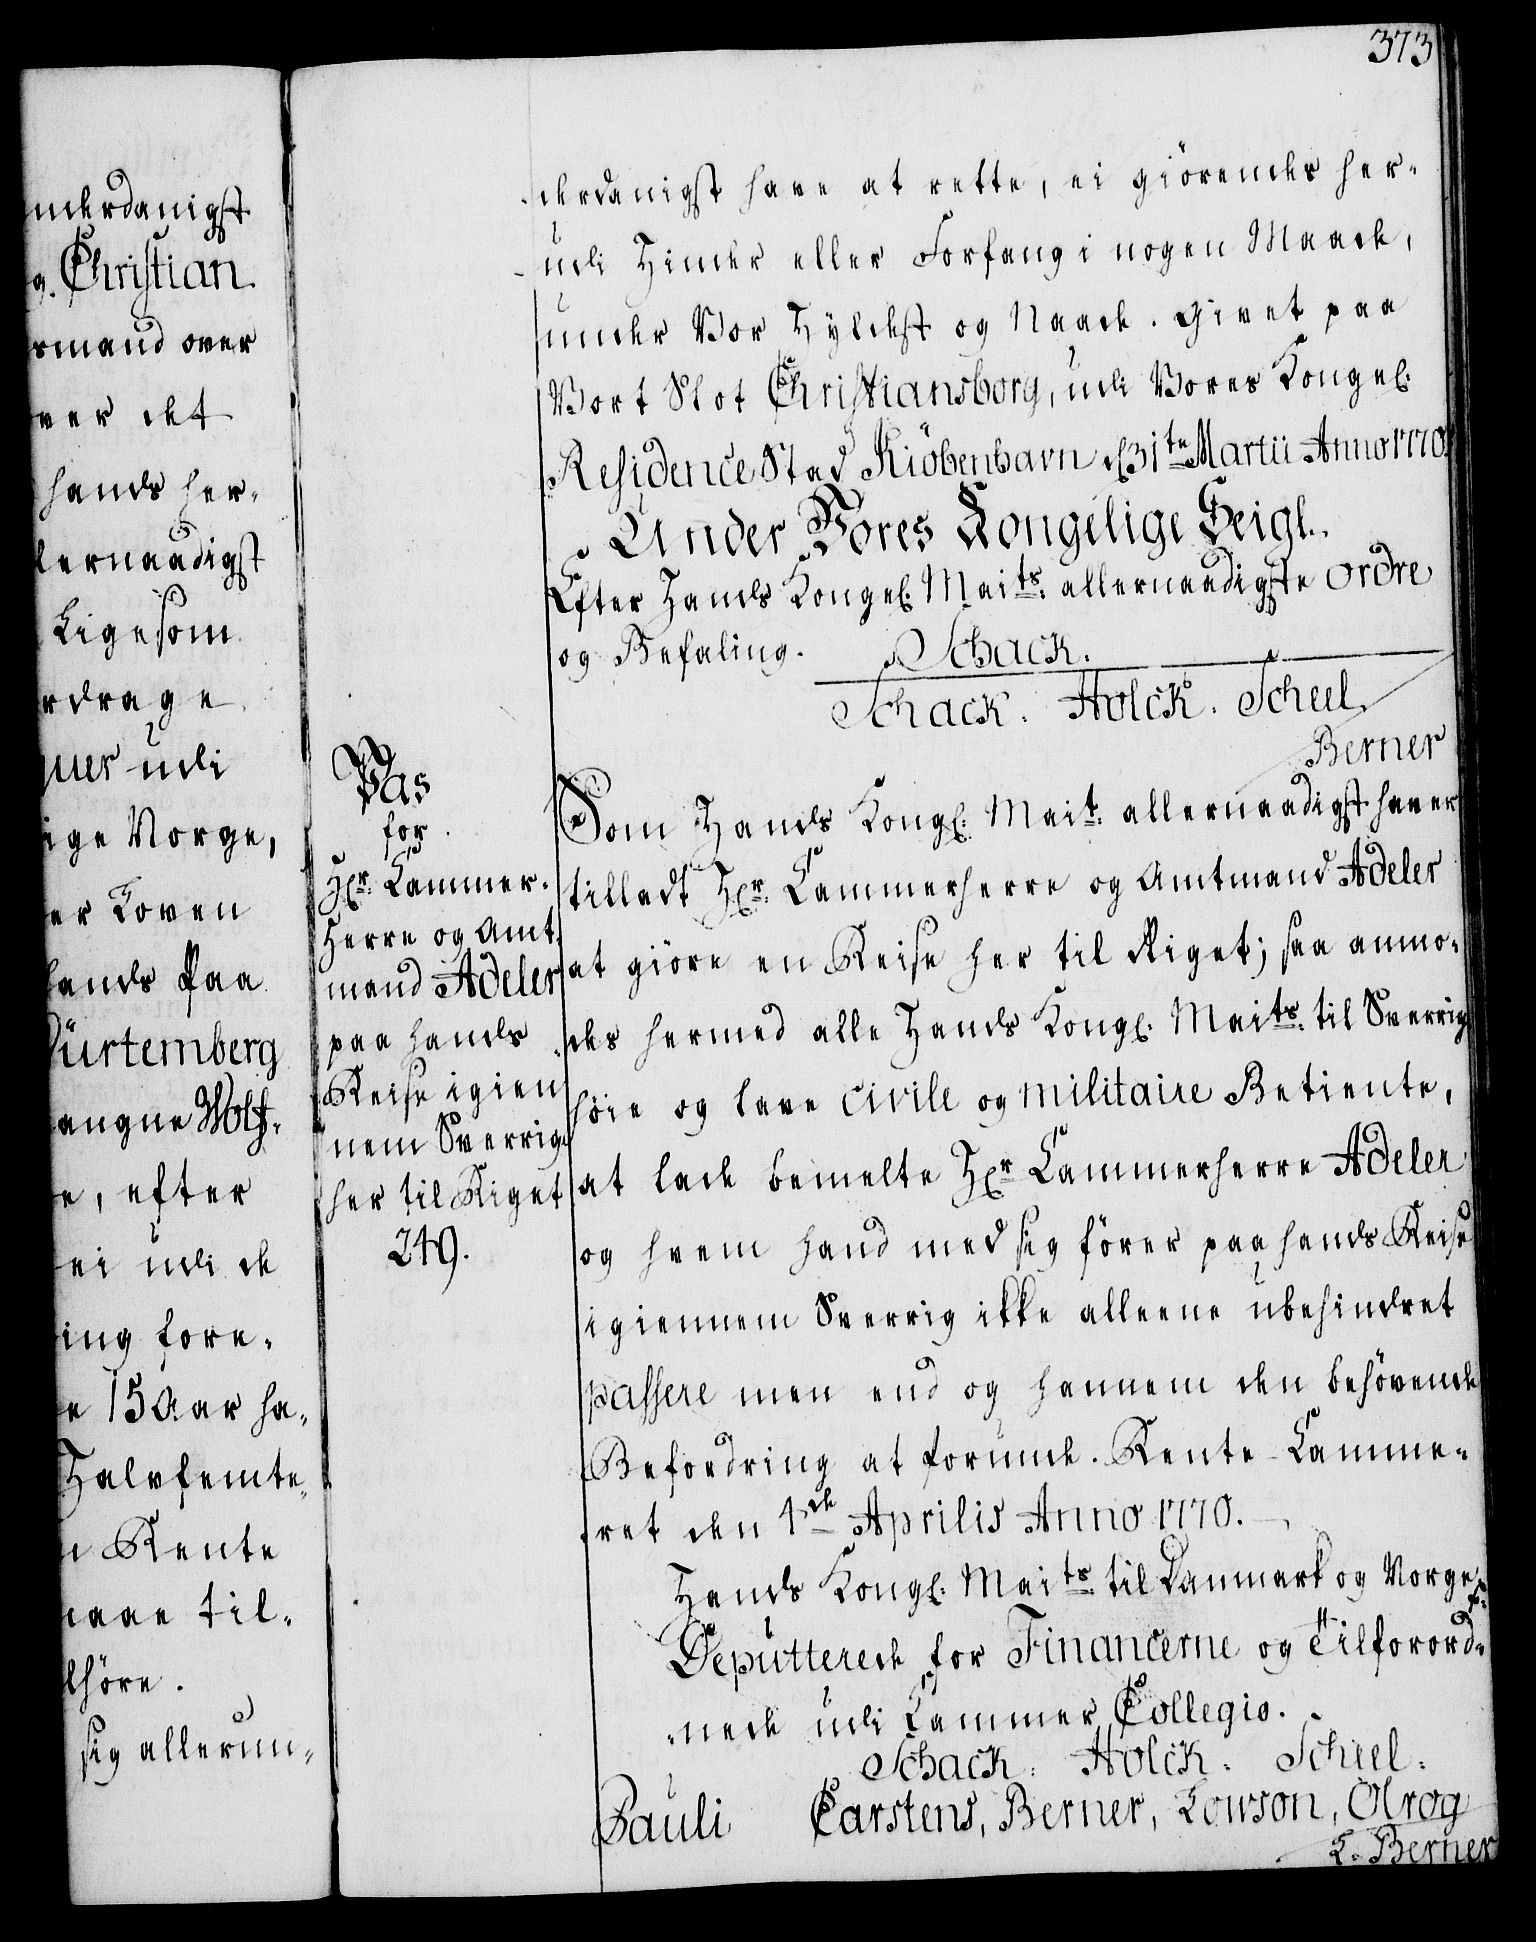 373
nderdanigst
g. Christian
rmand over
ver det
hands her-
lernaadigst
Ligesom
rdrage
quer udi
ige Norge,
er Loven
lands Paa
Würtemberg
angne Wolf-
e, efter
ei udi de
ing fore-
e 15 Aar ha-
Halvfemte
n Rente
maae til-
lhöre.
sig allerun-
derdanigst have at rette, ei giörendes her-
udi Hinder eller Forfang i nogen Maade,
under Vor Hyldest og Naade. Givet paa
Vort Slot Christiansborg, udi Vores Kongel.
Residence Stad Kiöbenhavn d. 31te Martii Anno 1770.
Under Vores Kongelige Seigl.
Efter Hands Kongel. Maits. allernaadigste ordre
og Befaling. Schack.
Schack. Holck. Scheel.
Berner
Pas
for
Hr. Cammer-
Herre og Amt-
mand Adeler
paa hands
Reise igien-
nem Sverrige
her til Riget
249.
Som Hands Kongl. Mait. allernaadigst haver
tilladt Hr. Cammerherre og Amtmand Adeler
at giöre en Reise her til Riget; saa anmo-
des hermed alle Hands Kongl. Maits. til Sverrig
höie og lave civile og militaire Betiente,
at lade bemelte Hr. Cammerherre Adeler
og hvem hand med sig förer paa hands Reise
igiennem Sverrig ikke alleene ubehindret
passere men end og hannem den behövende
Befordring at forunde. Rente-Camme-
ret den 4de Aprilis Anno 1770.
Hands Kongl. Maits. til Danmark og Norge p.
Deputterede for Financerne og Tilforord-
nede udi Cammer Collegio.
Schack. Holck. Scheel.
Pauli Carstens, Berner, Lowson, Olrog
L. Berner